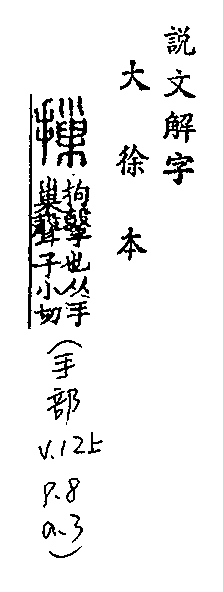 説文解字
大徐本
摷
拘擊也从手
巢聲子小切
(手部
v.12上
p.8
a.3)